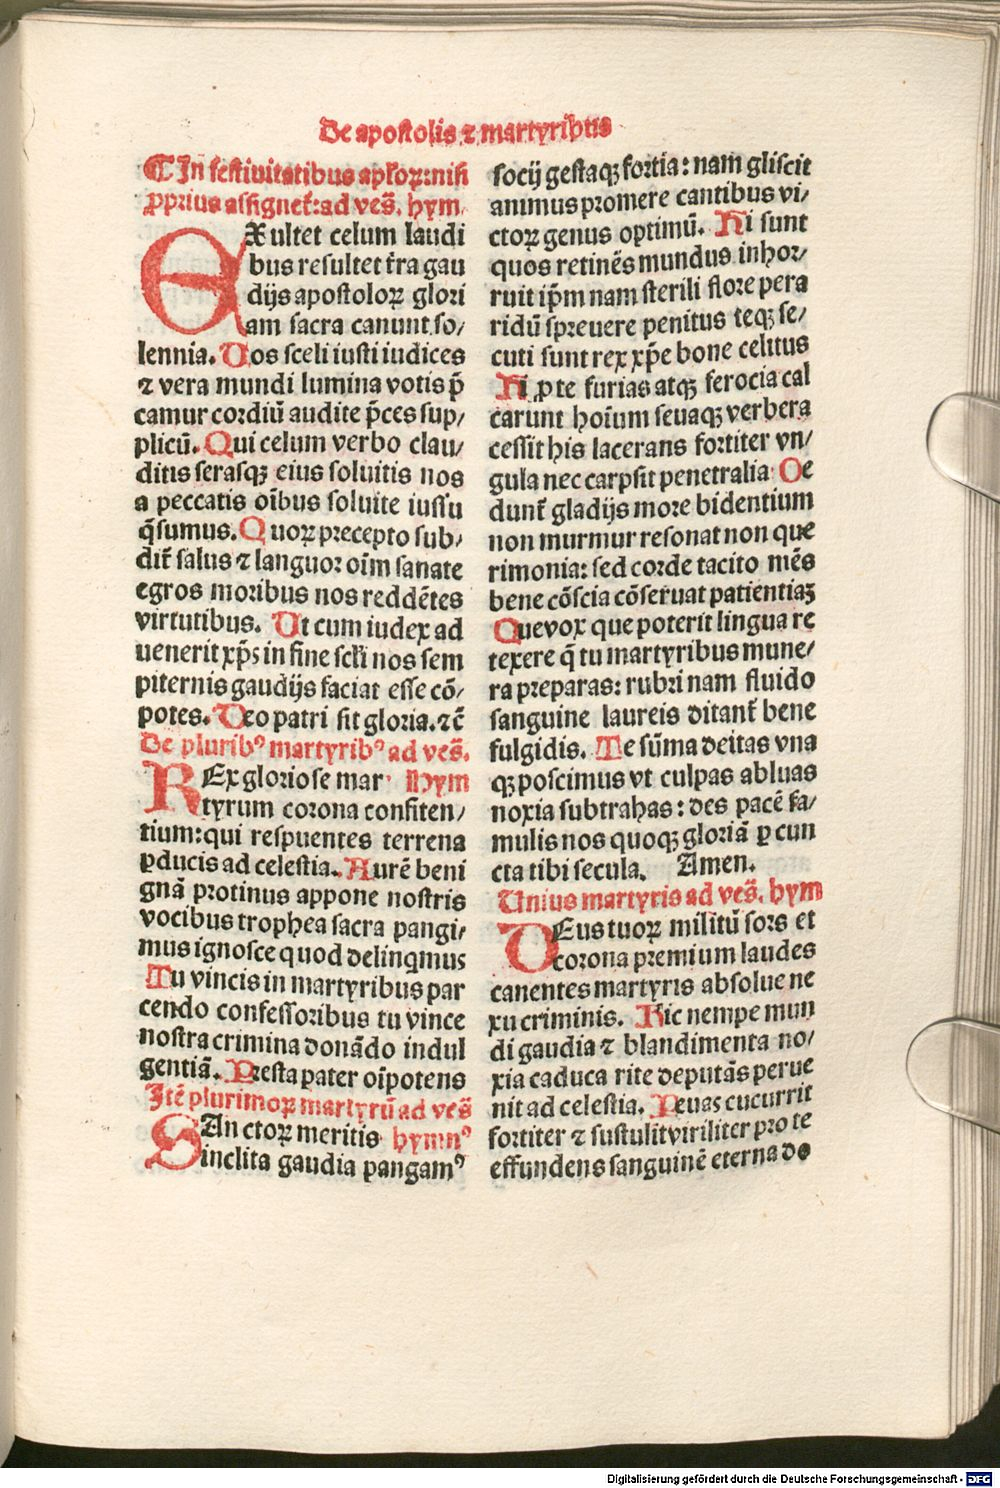 De apostolis ⁊ martyribus
¶ In festiuitatibus aplōꝝ: nisi
ꝓprius assignet̄: ad ves̄. hym
EXultet celum laudi
bus resultet t̄ra gau
dijs apostoloꝝ glori
am sacra canunt so/
lennia. Uos scēli iusti iudices
⁊ vera mundi lumina votis p̄
camur cordiū audite p̄ces sup/
plicū. Qui celum verbo clau/
ditis serasqꝫ eius soluitis nos
a peccatis oībus soluite iussu
q̄sumus. Quoꝝ precepto sub/
dit̄ salus ⁊ languor oīm sanate
egros moribus nos reddētes
virtutibus. Ut cum iudex ad
uenerit xp̄s in fine scl̄i nos sem
piternis gaudijs faciat esse cō/
potes. Deo patri sit gloria. ⁊c̄
De pluribꝰ martyribꝰ ad ves̄.
REx gloriose mar Hym
tyrum corona confiten/
tium: qui respuentes terrena
ꝑducis ad celestia. Aurē beni
gnā protinus appone nostris
vocibus trophea sacra pangi/
mus ignosce quod delinqmus
Tu vincis in martyribus par
cendo confessoribus tu vince
nostra crimina donādo indul
gentiā. Presta pater oīpotens
Itē plurimoꝝ martyrū ad ves̄
SAnctoꝝ meritis hymnꝰ
inclita gaudia pangamꝰ
socij gestaqꝫ fortia: nam gliscit
animus promere cantibus vi/
ctoꝝ genus optimū. Hi sunt
quos retinēs mundus inhor/
ruit ip̄m nam sterili flore pera
ridū spreuere penitus teqꝫ se/
cuti sunt rex xp̄e bone celitus
Hi ꝓ te furias atqꝫ ferocia cal
carunt hoīum seuaqꝫ verbera
cessit his lacerans fortiter vn/
gula nec carpsit penetralia Ce
dunt̄ gladijs more bidentium
non murmur resonat non que
rimonia: sed corde tacito mēs
bene cōscia cōseruat patientiaꝫ
Que vox que poterit lingua re
texere q̄ tu martyribus mune/
ra preparas: rubri nam fluido
sanguine laureis ditant̄ bene
fulgidis. Te sūma deitas vna
qꝫ poscimus vt culpas abluas
noxia subtrahas: des pacē fa/
mulis nos quoqꝫ gloriā ꝑ cun
cta tibi secula. Amen.
Unius martyris ad ves̄. hym
DEus tuoꝝ militū sors et
corona premium laudes
canentes martyris absolue ne
xu criminis. Hic nempe mun
di gaudia ⁊ blandimenta no/
xia caduca rite deputās perue
nit ad celestia. Penas cucurrit
fortiter ⁊ sustulit viriliter pro te
effundens sanguinē eterna do
Digitalisierung gefördert durch die Deutsche Forschungsgemeinschaft - DFG